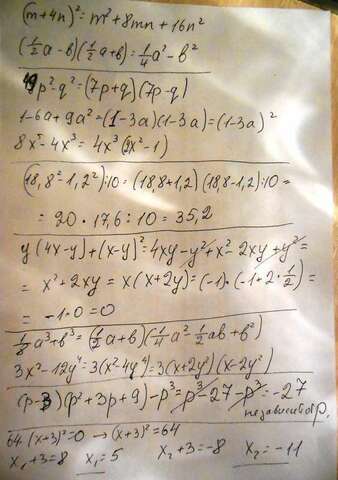 (m+4n)²=m²+8mn+16n²
(½a-в)(½a+в)=¼a²-в²
49p²-q²=(7p+q)(7p-q)
1-6a+9a²=(1-3a)(1-3a)=(1-3a)²
8x⁵-4x³=4x³(2x²-1)
(18,8²-1,2²):10=(18,8+1,2)(18,8-1,2):10=
=20·17,6:10=35,2
y(4x-y)+(x-y)²=4xy-y²+x²-2xy+y²=
=x²+2xy=x(x+2y)=(-1)·(-1+2·½)=
=-1·0=0
⅛a³+в³=(½a+в)(¼a²-½aв+в²)
3x²-12y⁴=3(x²-4y⁴)=3(x+2y²)(x-2y²)
(p-3)(p²+3p+9)-p³=p³-27-p³=-27
независит от p.
64-(x+3)²=0→(x+3)²=64
x₁+3=8 x₁=5 x₂+3=-8 x₂=-11